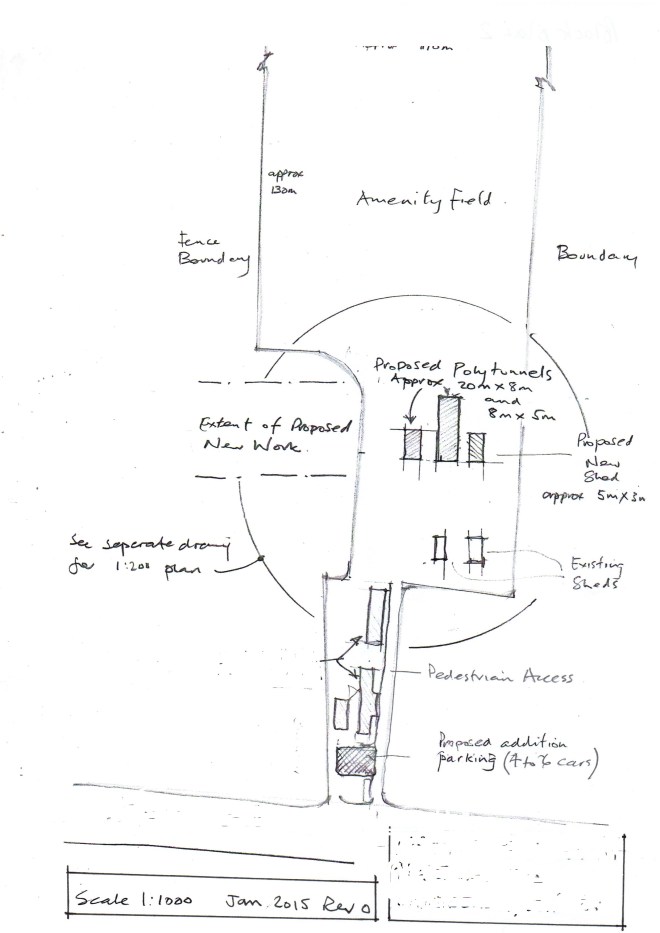 approx
130m
Amenity Field.
Fence
Boundary
Boundary
Proposed Polytunnels
Approx 20m x 8m
and
8m x 5m
Extent of Proposed
New Work.
Proposed
New
Shed
approx 5m x 3m
See seperate drawing
for 1:200 plan
Existing
Sheds
Pedestrian Access
Proposed addition
parking (4 to 6 cars)
Scale 1:1000 Jan. 2015 Rev 0